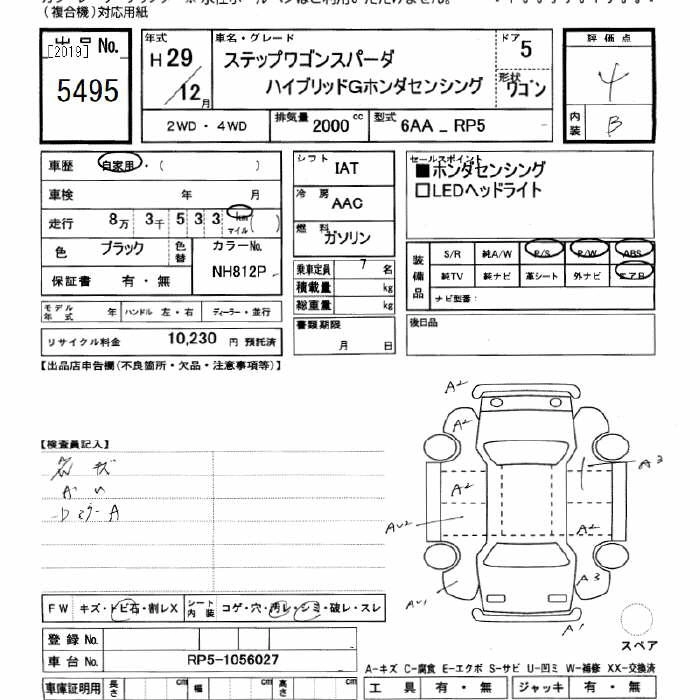 (複合機)対応用紙
出品No.
[2019]
5495
年式
H29
12月
車名・グレード
ステップワゴンスパーダ
ハイブリッドGホンダセンシング
ドア
5
形状
ワゴン
評価点
4
内装
B
2WD・4WD
排気量 2000 cc
型式 6AA_RP5
車歴 自家用・( )
車検 年 月
走行 8万 3千 5 3 3 km マイル ( )
色 ブラック 色替
カラーNo. NH812P
保証書 有・無
シフト IAT
冷房 AAC
燃料 ガソリン
乗車定員 7 名
積載量 kg
総重量 kg
セールスポイント
■ホンダセンシング
□LEDヘッドライト
装備品
S/R 純A/W P/S P/W ABS
純TV 純ナビ 革シート 外ナビ エアB
ナビ型番:
モデル年式 年 ハンドル 左・右 ディーラー・並行
リサイクル料金 10,230 円 預託済
書類期限
月 日
後日品
【出品店申告欄(不良箇所・欠品・注意事項等)】
【検査員記入】
A2
A2
A2
A3
AU2
A2
A3
AU1
A1
FW キズ・トビ石・割レX シート内装 コゲ・穴・汚レ・シミ・破レ・スレ
登録No.
車台No. RP5-1056027
車庫証明用 長さ cm 幅 cm 高さ cm
スペア
A-キズ C-腐食 E-エクボ S-サビ U-凹ミ W-補修 XX-交換済
工具 有・無 ジャッキ 有・無